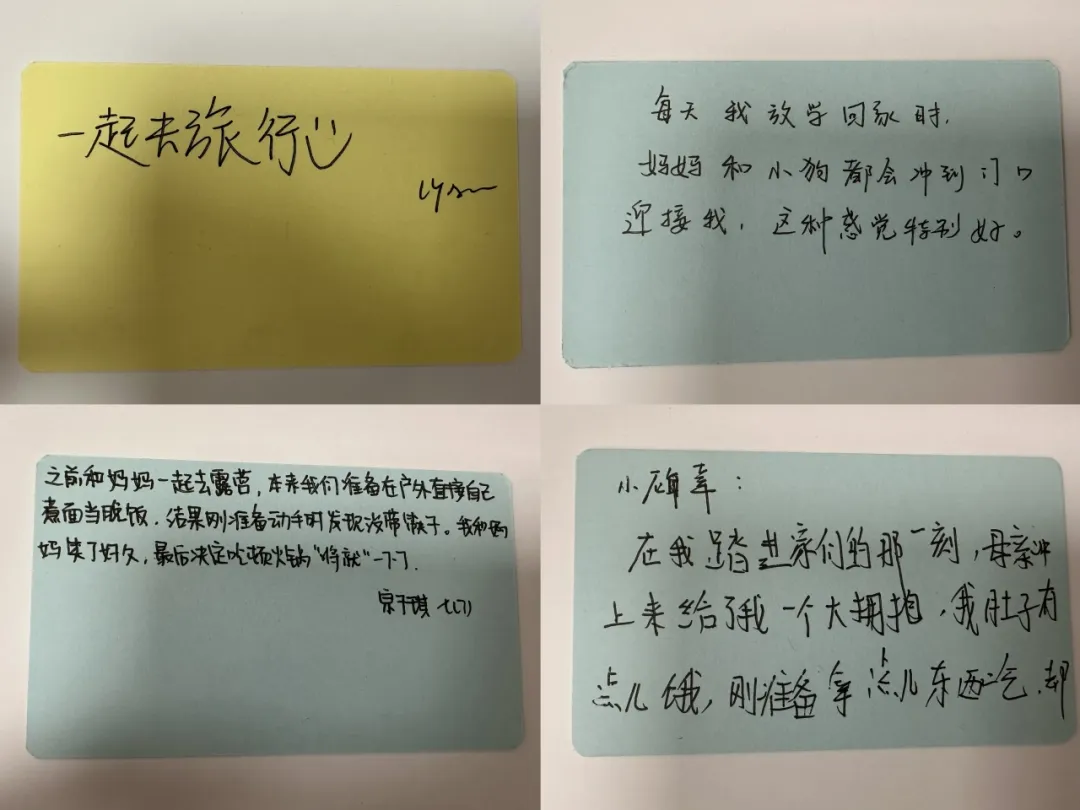 一起去旅行
每天我放学回家时,
妈妈和小狗都会冲到门口
迎接我,这种感觉特别好。
之前和妈妈一起去露营,本来我们准备在户外直接自己
煮面当晚饭,结果刚准备动手时发现没带筷子。我和妈
妈笑了好久,最后决定吃顿火锅“将就”一下.
宗于琪
小确幸:
在我踏进家门的那一刻,母亲冲
上来给了我一个大拥抱,我肚子有
点儿饿,刚准备拿点儿东西吃,却